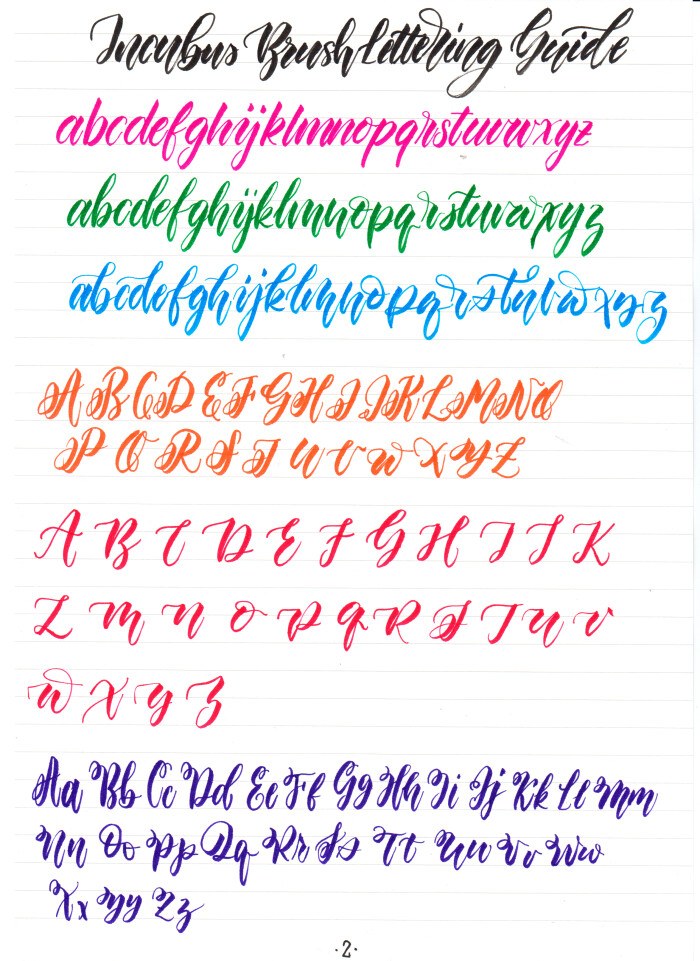 Incubus Brush Lettering Guide
abcdefghijklmnopqrstuvwxyz
abcdefghijklmnopqrstuvwxyz
abcdefghijklmnopqrstuvwxyz
A B C D E F G H I J K L M N O
P Q R S T U V W X Y Z
A B C D E F G H I J K
L M N O P Q R S T U V
W X Y Z
Aa Bb Cc Dd Ee Ff Gg Hh Ii Jj Kk Ll Mm
Nn Oo Pp Qq Rr Ss Tt Uu Vv Ww
Xx Yy Zz
·2·